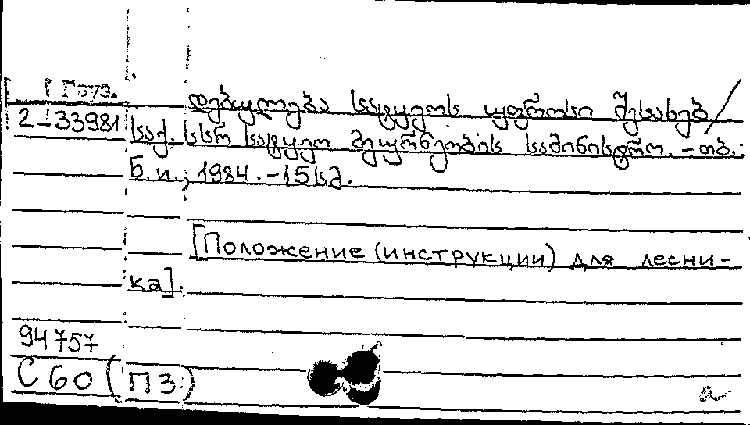 Груз.
2-33981
დებულება სატყეოს უფროსი შესახებ/
საქ. სსრ სატყეო მეურნეობის სამინისტრო. -თბ.:
Б.и., 1984.-15 სმ.
[Положение (инструкции) для лесни-
ка].
94757
С 60 (П3)